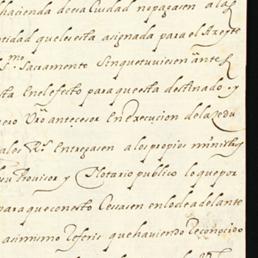 hacienda de esa Ciudad no pagasen a la R
tidad que les esta asignada para el Azeyte
SS.mo Sacramento sin que tuviesen ante R
sta en el efecto para que esta destinado y
ero Vro antecesor en execucion de la Redu
ales R.s Entregasen a los propios ministros
su Provisor y Notario publico lo que por
para que con esto Cesasen en lo de adelante
asimismo Referis que haviendo Reconocido